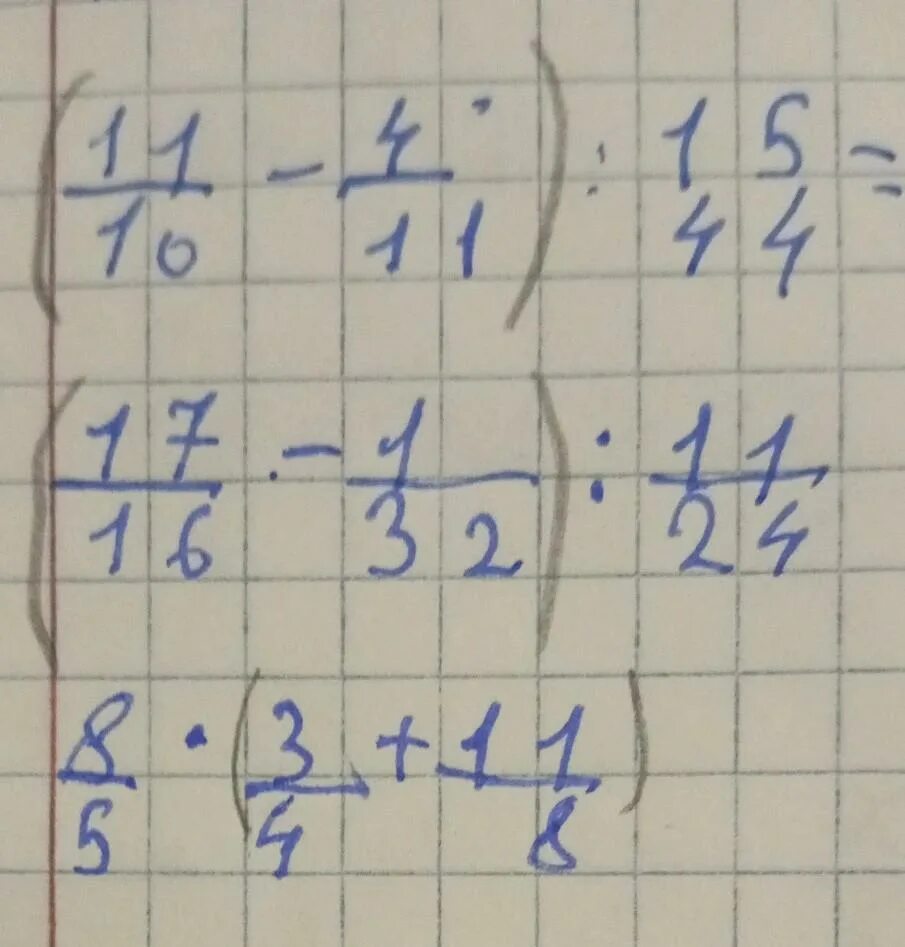 (11/10 - 4/11) : 15/44 =
(17/16 - 1/32) : 11/24
8/5 · (3/4 + 11/8)